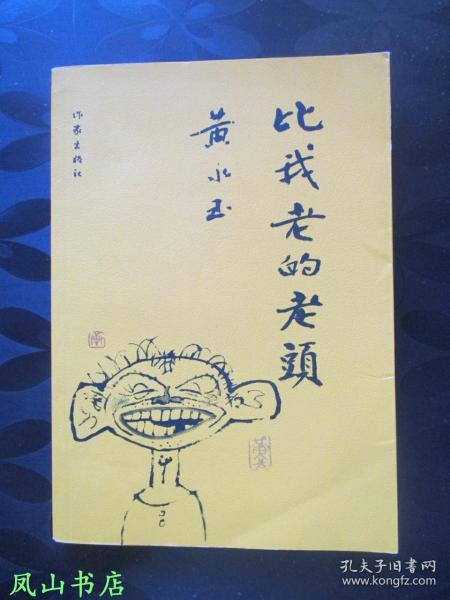 比我老的老頭
黄永玉
作家出版社
凤山书店
孔夫子旧书网
www.kongfz.com